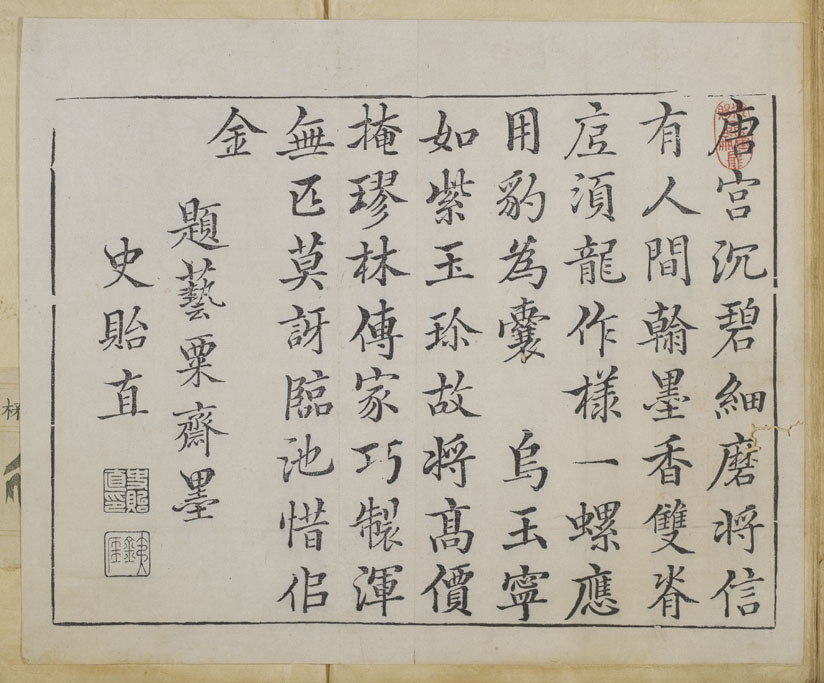 唐宫沉碧細磨將信
有人間翰墨香雙脊
㡳須龍作樣一螺應
用豹為囊　烏玉寧
如紫玉珍故將髙價
掩璆林傳家巧製渾
無匹莫訝臨池惜佀
金
題藝粟齋墨
史貽直
史貽
直印